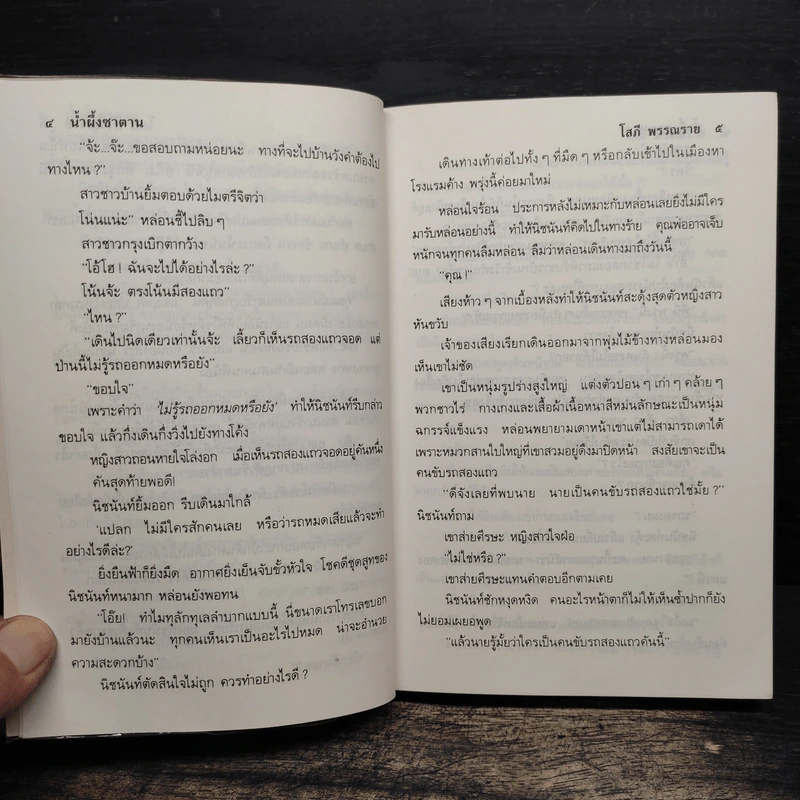 ๔ น้ำผึ้งซาตาน
“จ้ะ...จ๊ะ...ขอสอบถามหน่อยนะ ทางที่จะไปบ้านวังคำต้องไป
ทางไหน ?”
สาวชาวบ้านยิ้มตอบด้วยไมตรีจิตว่า
โน่นแน่ะ” หล่อนชี้ไปลิบ ๆ
สาวชาวกรุงเบิกตากว้าง
“โอ้โฮ ! ฉันจะไปได้อย่างไรล่ะ ?”
โน้นจ้ะ ตรงโน้นมีสองแถว”
“ไหน ?”
“เดินไปนิดเดียวเท่านั้นจ้ะ เลี้ยวก็เห็นรถสองแถวจอด แต่
ป่านนี้ไม่รู้รถออกหมดหรือยัง”
“ขอบใจ”
เพราะคำว่า ‘ไม่รู้รถออกหมดหรือยัง’ ทำให้นิชนันท์รีบกล่าว
ขอบใจ แล้วกึ่งเดินกึ่งวิ่งไปยังทางโค้ง
หญิงสาวถอนหายใจโล่งอก เมื่อเห็นรถสองแถวจอดอยู่คันหนึ่ง
คันสุดท้ายพอดี!
นิชนันท์ยิ้มออก รีบเดินมาใกล้
‘แปลก ไม่มีใครสักคนเลย หรือว่ารถหมดเสียแล้วจะทำ
อย่างไรดีล่ะ?’
ยิ่งยืนฟ้าก็ยิ่งมืด อากาศยิ่งเย็นจับขั้วหัวใจ โชคดีชุดสูทของ
นิชนันท์หนามาก หล่อนยังพอทน
“โอ๊ย! ทำไมทุลักทุเลลำบากแบบนี้ นี่ขนาดเราโทรเลขบอก
มายังบ้านแล้วนะ ทุกคนเห็นเราเป็นอะไรไปหมด น่าจะอำนวย
ความสะดวกบ้าง”
นิชนันท์ตัดสินใจไม่ถูก ควรทำอย่างไรดี ?
โสภี พรรณราย ๕
เดินทางเท้าต่อไปทั้ง ๆ ที่มืด ๆ หรือกลับเข้าไปในเมืองหา
โรงแรมค้าง พรุ่งนี้ค่อยมาใหม่
หล่อนใจร้อน ประการหลังไม่เหมาะกับหล่อนเลยยิ่งไม่มีใคร
มารับหล่อนอย่างนี้ ทำให้นิชนันท์คิดไปในทางร้าย คุณพ่ออาจเจ็บ
หนักจนทุกคนลืมหล่อน ลืมว่าหล่อนเดินทางมาถึงวันนี้
“คุณ !”
เสียงห้าว ๆ จากเบื้องหลังทำให้นิชนันท์สะดุ้งสุดตัวหญิงสาว
หันขวับ
เจ้าของเสียงเรียกเดินออกมาจากพุ่มไม้ข้างทางหล่อนมอง
เห็นเขาไม่ชัด
เขาเป็นหนุ่มรูปร่างสูงใหญ่ แต่งตัวปอน ๆ เก่า ๆ คล้าย ๆ
พวกชาวไร่ กางเกงและเสื้อผ้าเนื้อหนาสีหม่นลักษณะเป็นหนุ่ม
ฉกรรจ์แข็งแรง หล่อนพยายามเดาหน้าเขาแต่ไม่สามารถเดาได้
เพราะหมวกสานใบใหญ่ที่เขาสวมอยู่ดึงมาปิดหน้า สงสัยเขาจะเป็น
คนขับรถสองแถว
“ดีจังเลยที่พบนาย นายเป็นคนขับรถสองแถวใช่มั้ย ?”
นิชนันท์ถาม
เขาส่ายศีรษะ หญิงสาวใจฝ่อ
“ไม่ใช่หรือ ?”
เขาส่ายศีรษะแทนคำตอบอีกตามเคย
นิชนันท์ชักหงุดหงิด คนอะไรหน้าตาก็ไม่ให้เห็นซ้ำปากก็ยัง
ไม่ยอมเผยอพูด
“แล้วนายรู้มั้ยว่าใครเป็นคนขับรถสองแถวคันนี้”